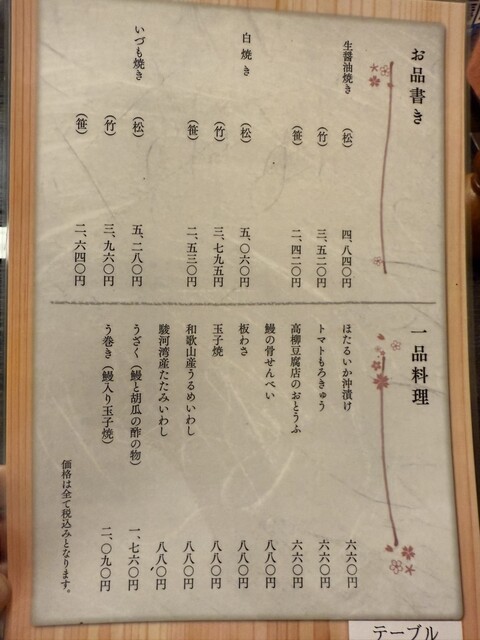 お品書き
生醤油焼き （松） 四、八四〇円
（竹） 三、五二〇円
（笹） 二、四二〇円
白焼き （松） 五、〇六〇円
（竹） 三、七九五円
（笹） 二、五三〇円
いづも焼き （松） 五、二八〇円
（竹） 三、九六〇円
（笹） 二、六四〇円
一品料理
ほたるいか沖漬け 六六〇円
トマトもろきゅう 六六〇円
高柳豆腐店のおとうふ 六六〇円
鰻の骨せんべい 八八〇円
板わさ 八八〇円
玉子焼 八八〇円
和歌山産うるめいわし 八八〇円
駿河湾産たたみいわし 八八〇円
うざく（鰻と胡瓜の酢の物） 一、七六〇円
う巻き（鰻入り玉子焼） 二、〇九〇円
価格は全て税込みとなります。
テーブル